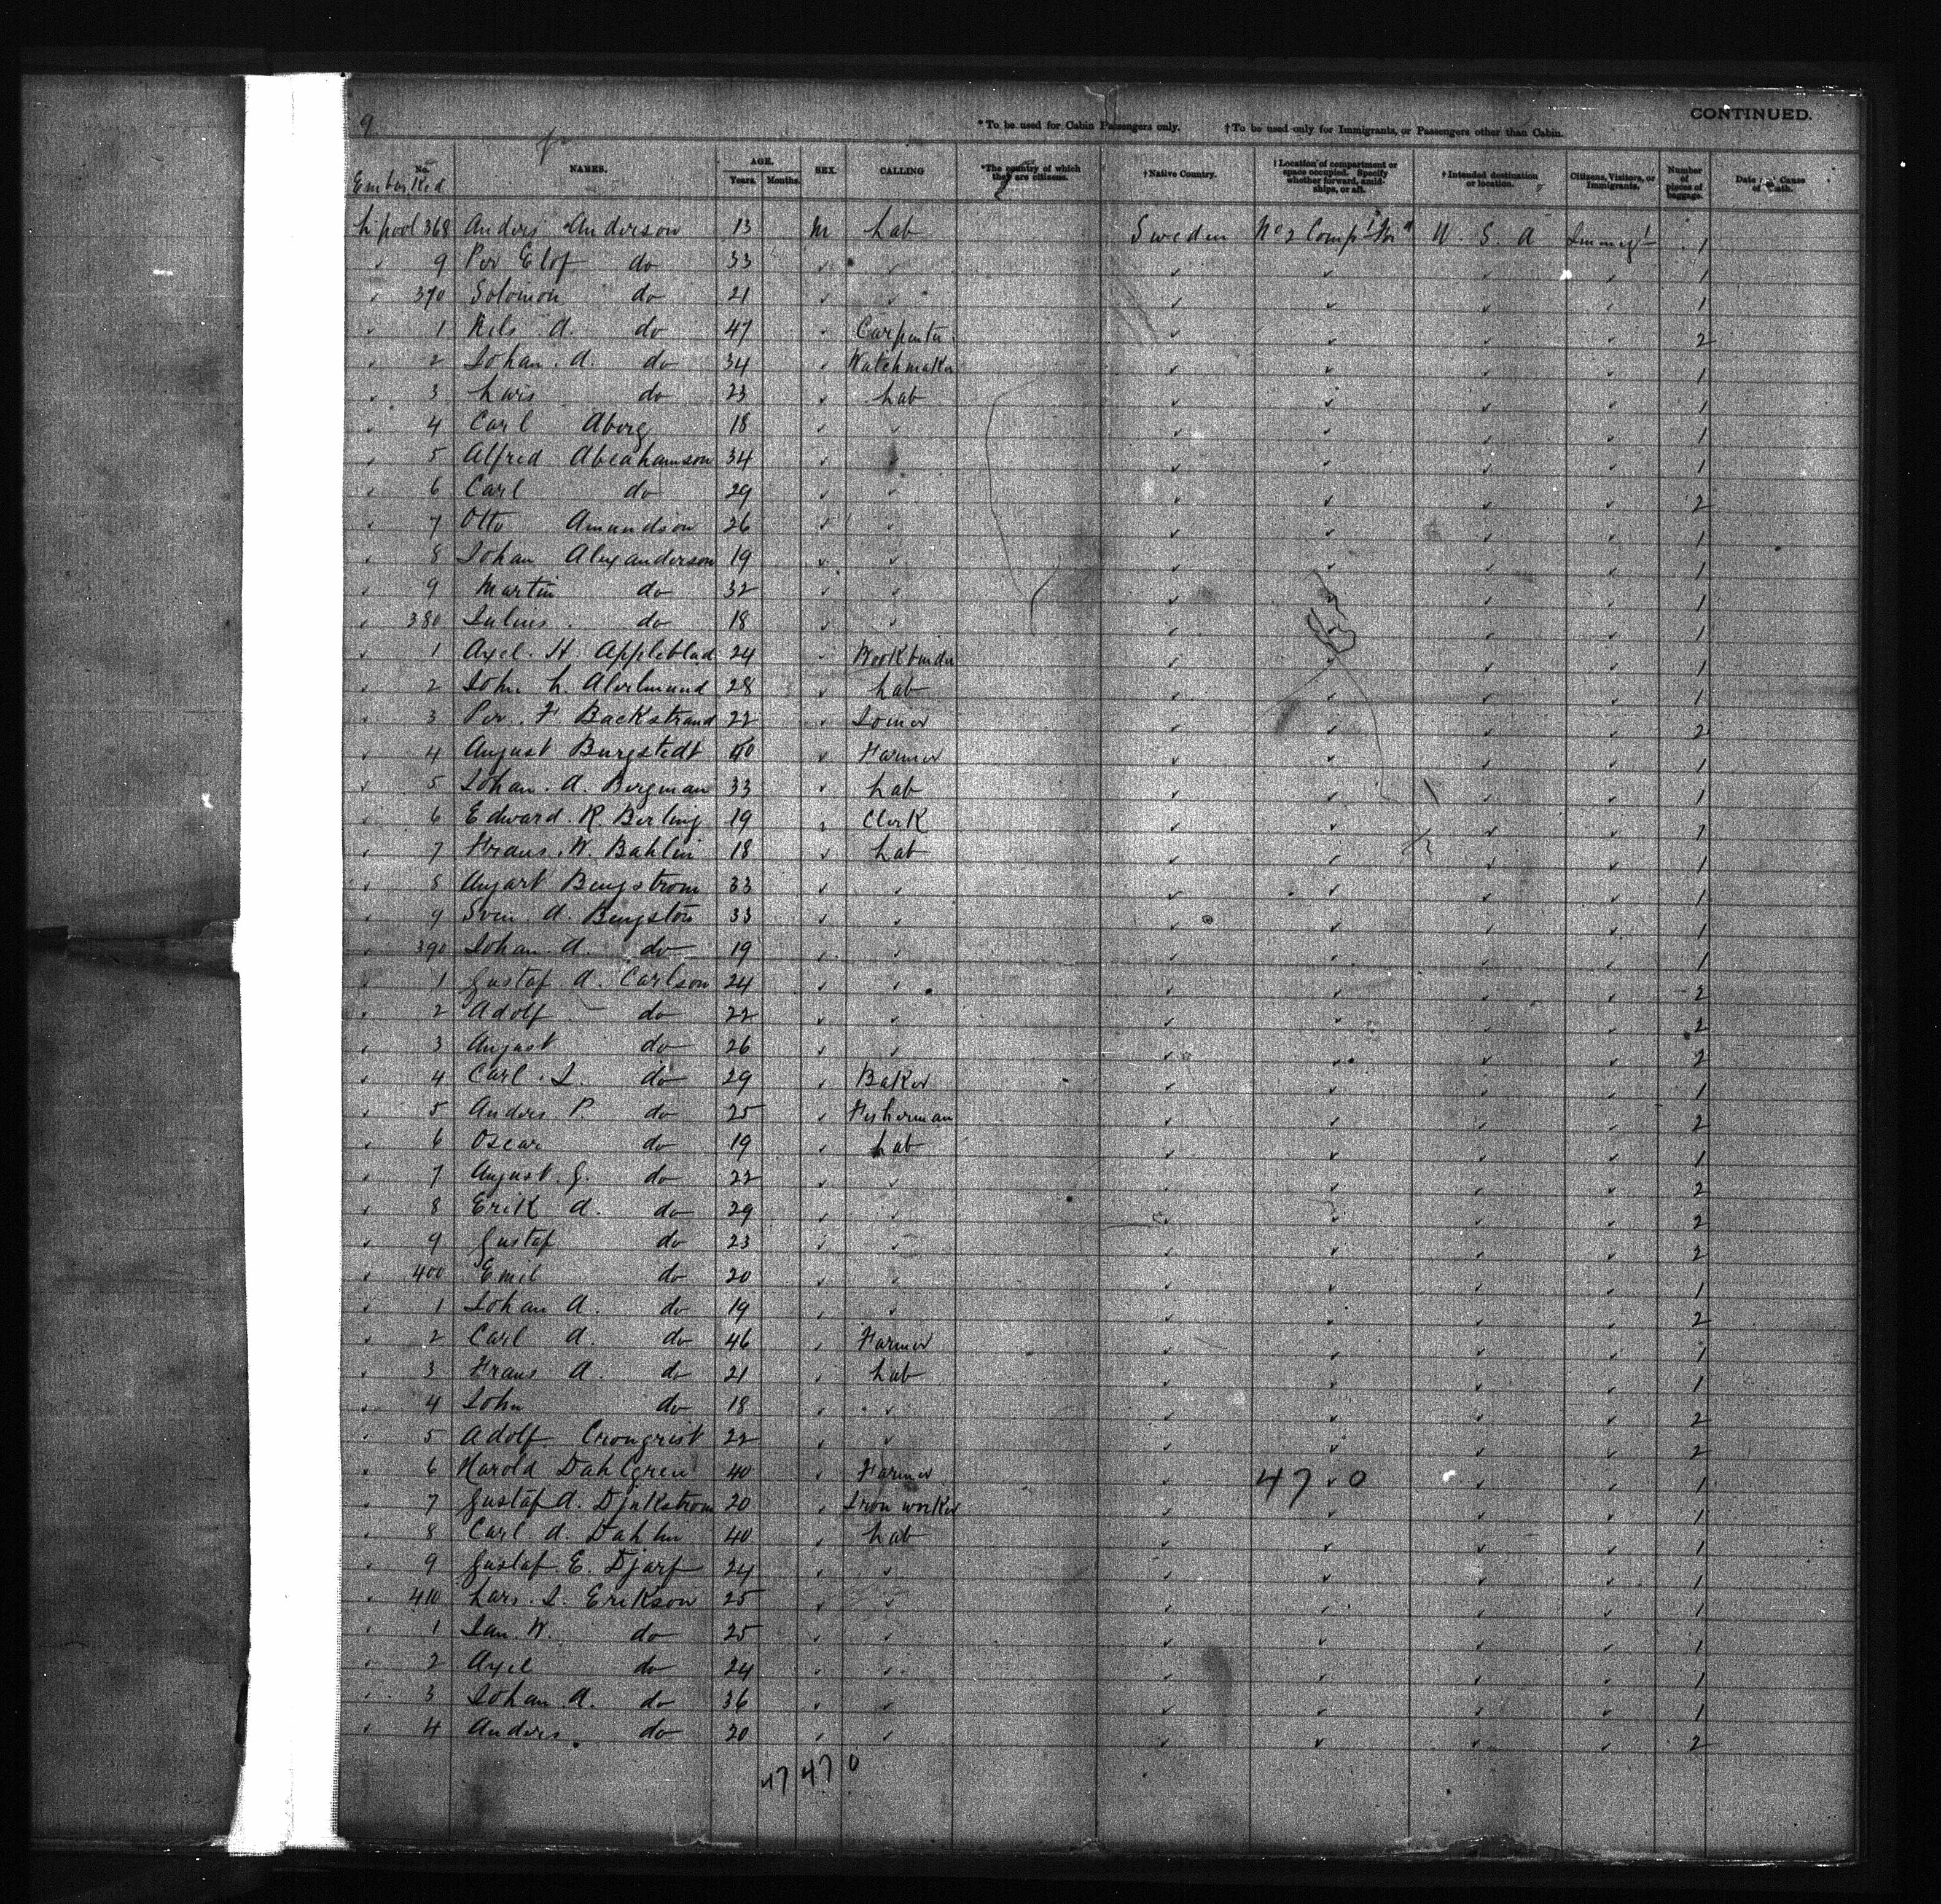 9
CONTINUED.
* To be used for Cabin Passengers only. † To be used only for Immigrants, or Passengers other than Cabin.
No. NAMES. AGE. Years. Months. SEX. CALLING *The country of which they are citizens. † Native Country. † Location of compartment or space occupied. Specify whether forward, amidships, or aft. † Intended destination or location. Citizens, Visitors, or Immigrants. Number of pieces of baggage. Date Cause of
Embarked
L'pool 368 Anders Anderson 13 M Lab Sweden No 2 Comp U. S. A Immigt 1
9 Per Elof do 33 1
370 Solomon do 21 1
1 Nels A. do 47 Carpenter 2
2 Johan. A. do 34 Watchmaker 1
3 Lars do 23 Lab 1
4 Carl Aborg 18 1
5 Alfred Abrahamson 34 1
6 Carl do 29 2
7 Otto Amundson 26 1
8 Johan Alexanderson 19 1
9 Martin do 32 1
380 Julius do 18 1
1 Axel. H. Appleblad 24 Bookbinder 1
2 John L. 28 Lab 1
3 Per. F Backstrand 22 Joiner 2
4 August Burgstedt 40 Farmer 1
5 Johan. A. Bergman 33 Lab 1
6 Edward. R. Berling 19 Clerk 1
7 Frans. W. Bahlin 18 Lab 1
8 Bengstrom 33 1
9 Sven. A. Bengston 33 1
390 Johan. A. do 19 1
1 Gustaf A. Carlson 24 2
2 Adolf do 22 2
3 August do 26 2
4 Carl. J. do 29 Baker 1
5 Anders P. do 25 Fisherman 2
6 Oscar do 19 Lab 1
7 August. G. do 22 2
8 Erik A. do 29 2
9 Gustaf do 23 2
400 Emil do 20 1
1 Johan A. do 19 2
2 Carl A. do 46 Farmer 1
3 Frans A. do 21 Lab 1
4 John do 18 2
5 Adolf Cronqrist 22 2
6 Harold Dahlgren 40 Farmer 47 0 1
7 Gustaf A. Djukstrom 20 Iron worker 1
8 Carl A. Dahlin 40 Lab 1
9 Gustaf E. Djarf 24 1
410 Lars. J. Erikson 25 1
1 Jan. W. do 25 1
2 Axel do 24 1
3 Johan A. do 36 1
4 Anders do 20 2
47 47 0